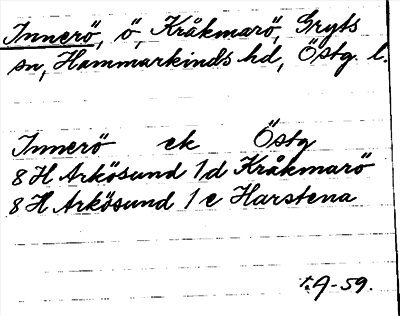 Innerö, ö, Kråkmarö, Gryts
sn, Hammarkinds hd, Östg. l.
Innerö ek Östg
8H Arkösund 1d Kråkmarö
8H Arkösund 1e Harstena
A-59.